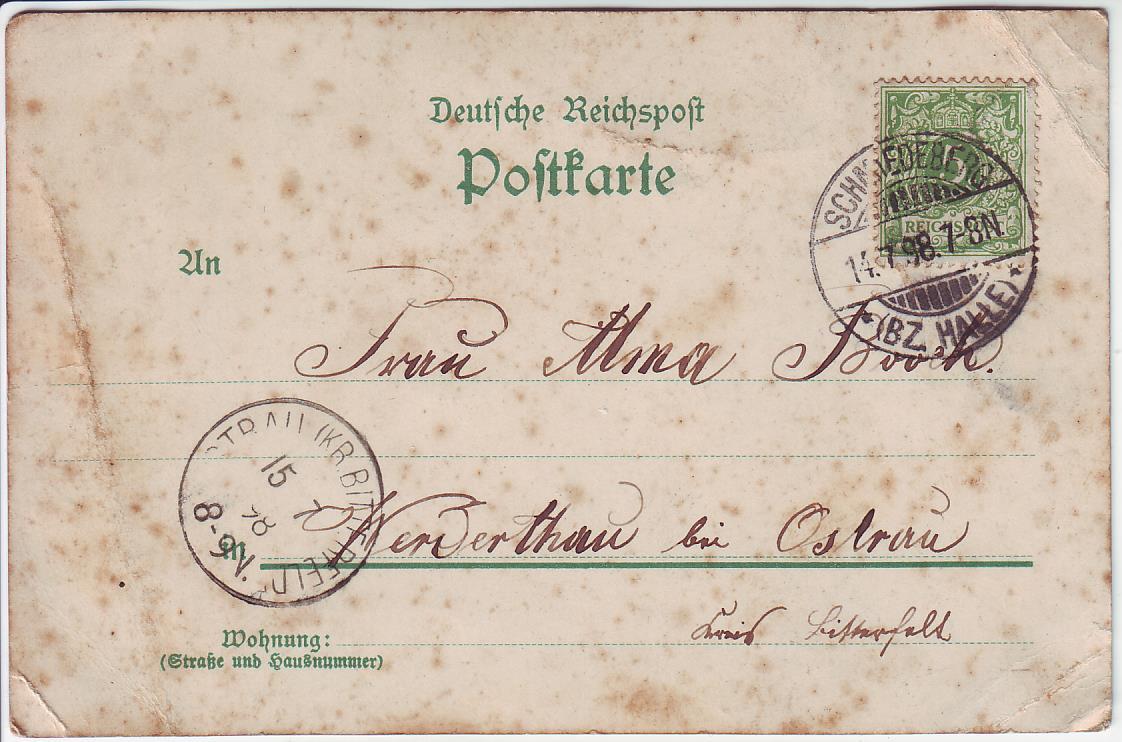 Deutsche Reichspost
Postkarte
5
REICHSPOST
SCHMIEDEBERG
14.7.98. 7-8N.
*(BZ. HALLE)*
An
Frau Alma Bock.
OSTRAU (KR. BITTERFELD)
15 7
98
8-9N.
in Werderthau bei Ostrau
Kreis Bitterfelt
Wohnung:
(Straße und Hausnummer)